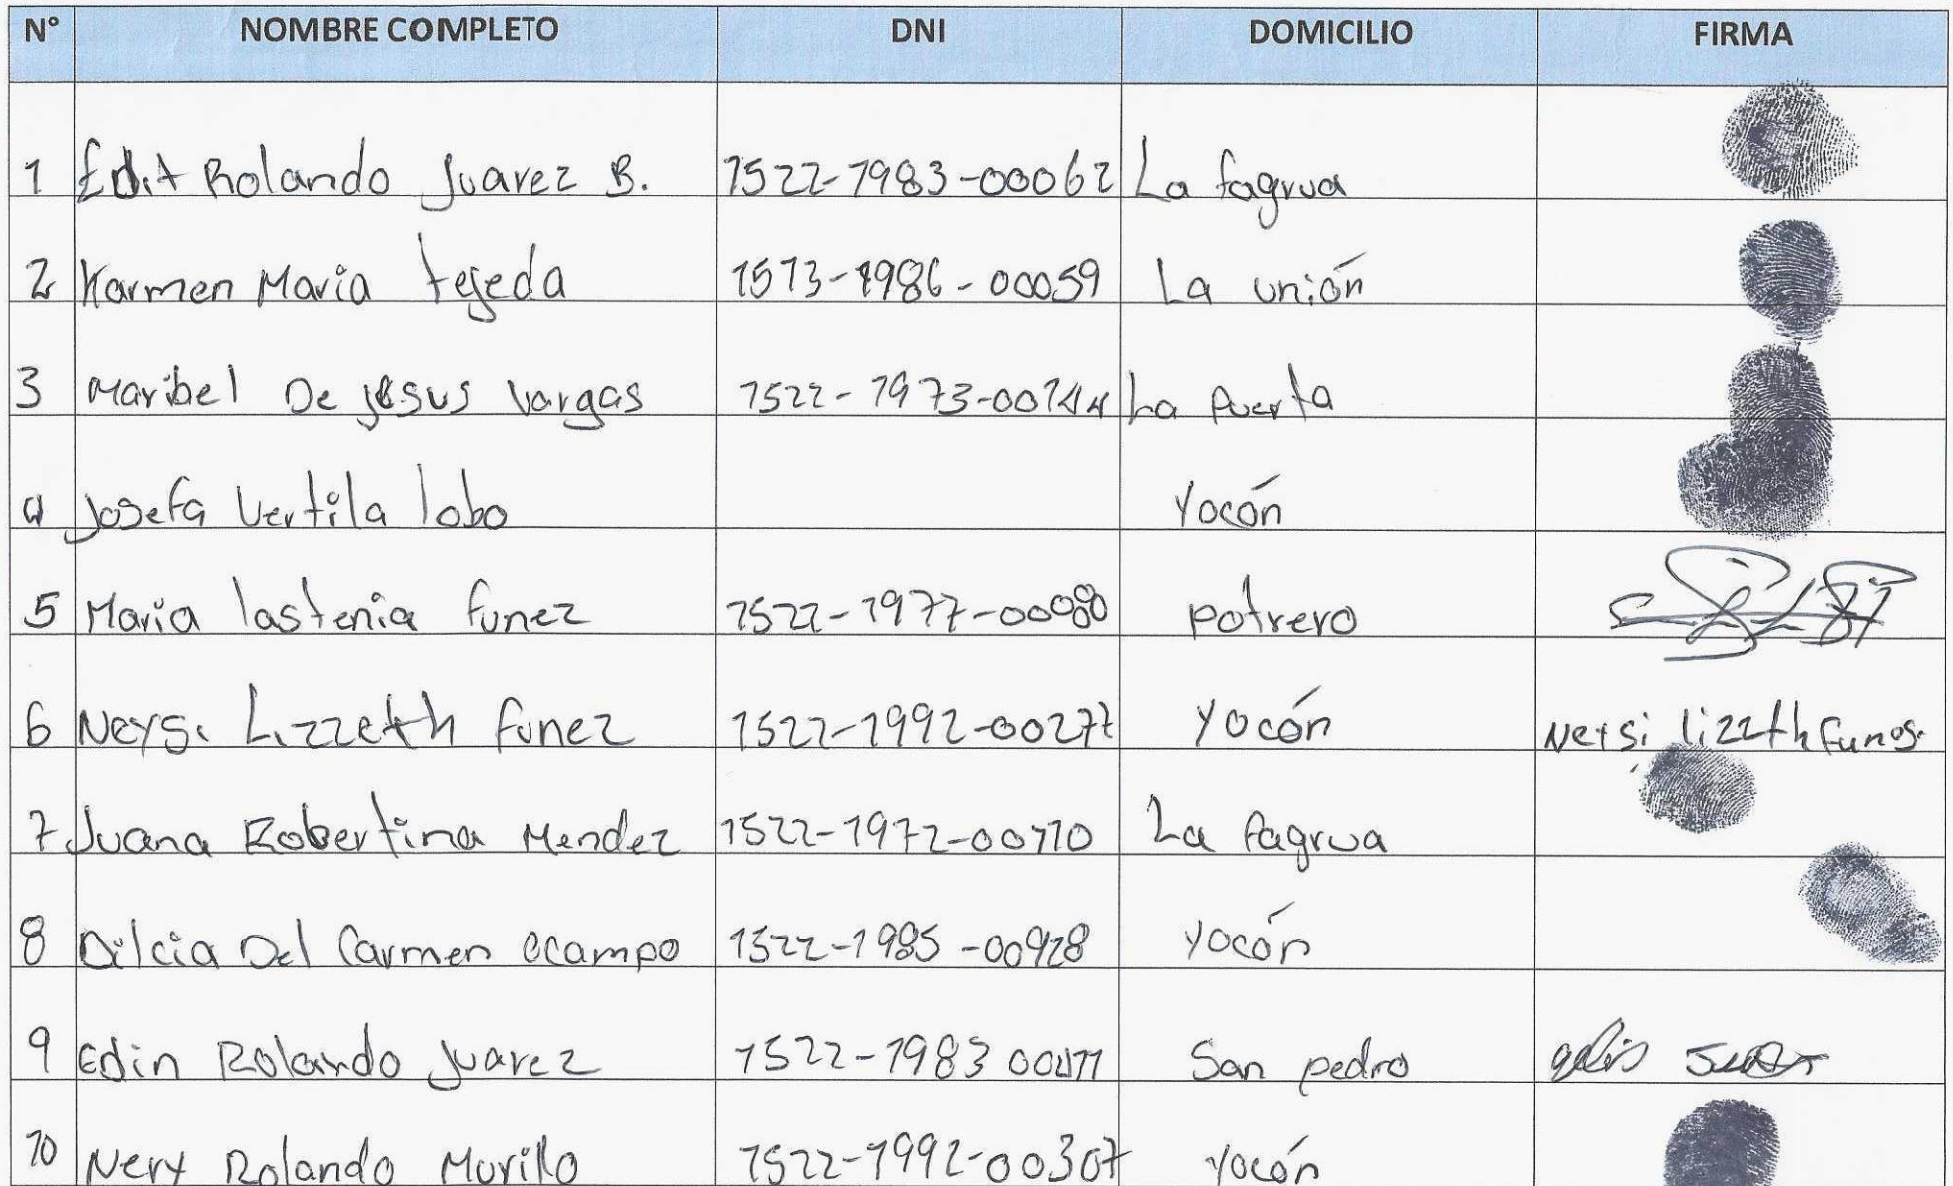 N° NOMBRE COMPLETO DNI DOMICILIO FIRMA
1 Edit Rolando Juarez B. 1522-1983-00062 La fagrua
2 Karmen Maria tejeda 1513-1986-00059 La unión
3 Maribel De jesus vargas 1522-1973-00144 La Puerta
4 Josefa Vertila lobo Yocón
5 Maria lastenia funez 1522-1977- potrero
6 Neysi Lizzeth funez 1522-1992-00277 Yocón Neysi lizzth funes.
7 Juana Robertina Mendez 1522-1972-00110 La fagrua
8 Dilcia Del Carmen Ocampo 1522-1985- Yocón
9 Edin Rolando Juarez 1522-1983 San pedro
10 Nery Rolando Murillo 1522-1992-00307 Yocón